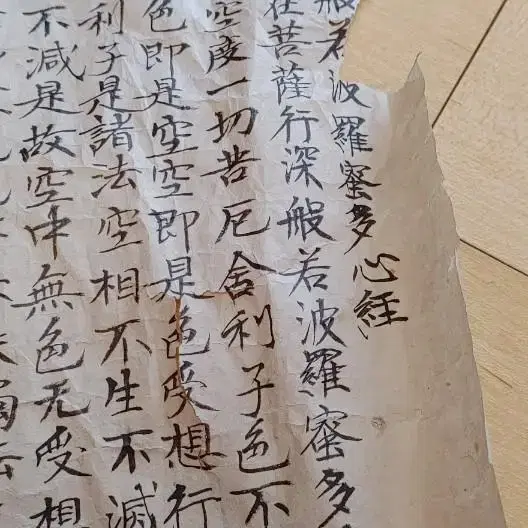 般若波羅蜜多心経
在菩薩行深般若波羅蜜多
空度一切苦厄舍利子色不
色即是空空即是色受想行
利子是諸法空相不生不滅
不減是故空中無色无受想